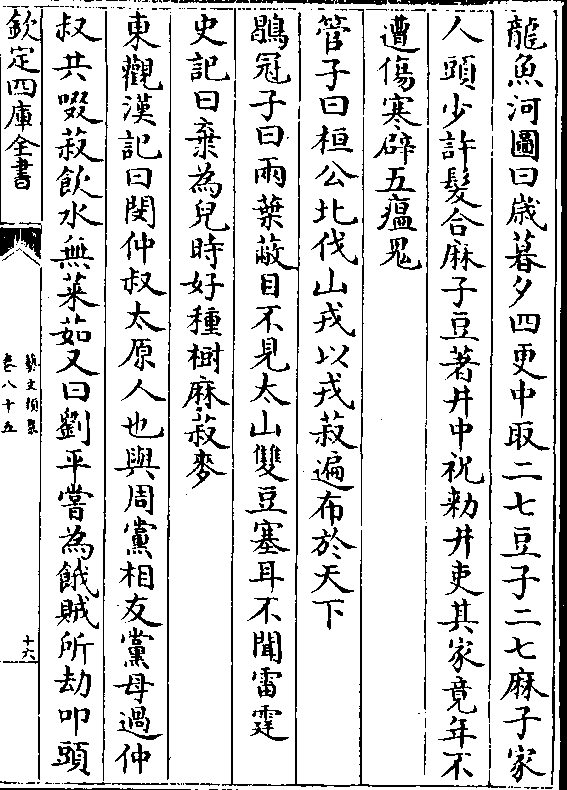 龍魚河圖曰歳暮夕四更中取二七豆子二七麻子家
人頭少許髮合麻子豆著井中祝勑井吏其家竟年不
遭傷寒辟五瘟鬼
管子曰桓公北伐山戎以戎菽遍布於天下
鶡冠子曰兩葉蔽目不見太山雙豆塞耳不聞雷霆
史記曰棄為兒時好種樹麻菽麥
東觀漢記曰閔仲叔太原人也與周黨相友黨母過仲
叔共啜菽飲水無菜茹又曰劉平嘗為餓賊所劫叩頭
欽定四庫全書
藝文類聚
卷八十五
十六